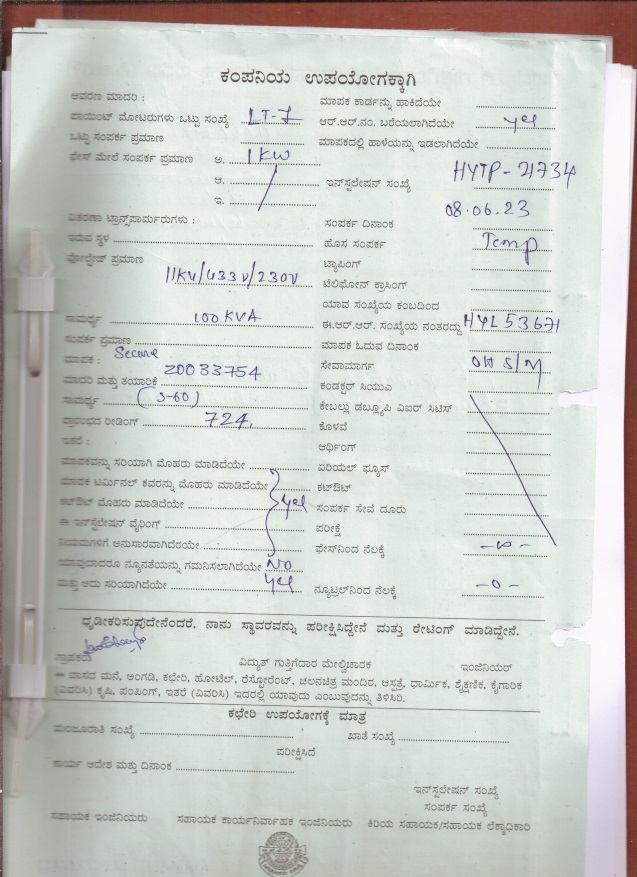 ಕಂಪನಿಯ ಉಪಯೋಗಕ್ಕಾಗಿ
ಆವರಣ ಮಾದರಿ :
ಪಾಯಿಂಟ್ ಮೋಟರುಗಳು ಒಟ್ಟು ಸಂಖ್ಯೆ LT-7
ಒಟ್ಟು ಸಂಪರ್ಕ ಪ್ರಮಾಣ
ಫೇಸ್ ಮೇಲೆ ಸಂಪರ್ಕ ಪ್ರಮಾಣ ಅ. 1 KW
ಆ.
ಇ.
ವಿತರಣಾ ಟ್ರಾನ್ಸ್‌ಫಾರ್ಮರುಗಳು :
ಇರುವ ಸ್ಥಳ
ವೋಲ್ಟೇಜ್ ಪ್ರಮಾಣ
11KV/433V/230V
ಸಾಮರ್ಥ್ಯ 100 KVA
ಸಂಪರ್ಕ ಪ್ರಮಾಣ
ಮಾಪಕ : Secure
ಮಾದರಿ ಮತ್ತು ತಯಾರಿಕೆ 20033754
ಸಾಮರ್ಥ್ಯ (5-60)
ಪ್ರಾರಂಭದ ರೀಡಿಂಗ್ 724.
ಇತರೆ :
ಮಾಪಕವನ್ನು ಸರಿಯಾಗಿ ಮೊಹರು ಮಾಡಿದೆಯೇ
ಮಾಪಕ ಟರ್ಮಿನಲ್ ಕವರನ್ನು ಮೊಹರು ಮಾಡಿದೆಯೇ
ಕಟ್‌ಔಟ್ ಮೊಹರು ಮಾಡಿದೆಯೇ yes
ಈ ಇನ್‌ಸ್ಟಲೇಷನ್ ವೈರಿಂಗ್
ನಿಯಮಗಳಿಗೆ ಅನುಸಾರವಾಗಿದೆರಯೇ
ಯಾವುದಾದರೂ ನ್ಯೂನತೆಯನ್ನು ಗಮನಿಸಲಾಗಿದೆಯೇ NO
ಮತ್ತು ಅದು ಸರಿಯಾಗಿದೆಯೇ yes
ಮಾಪಕ ಕಾರ್ಡನ್ನು ಹಾಕಿದೆಯೇ
ಆರ್.ಆರ್.ನಂ. ಬರೆಯಲಾಗಿದೆಯೇ yes
ಮಾಪಕದಲ್ಲಿ ಹಾಳೆಯನ್ನು ಇಡಲಾಗಿದೆಯೇ
ಇನ್‌ಸ್ಟಲೇಷನ್ ಸಂಖ್ಯೆ HYTP-21734
ಸಂಪರ್ಕ ದಿನಾಂಕ 08.06.23
ಹೊಸ ಸಂಪರ್ಕ Temp
ಟ್ಯಾಪಿಂಗ್
ಟೆಲಿಫೋನ್ ಕ್ರಾಸಿಂಗ್
ಯಾವ ಸಂಖ್ಯೆಯ ಕಂಬದಿಂದ
ಈ.ಆರ್.ಆರ್. ಸಂಖ್ಯೆಯ ನಂತರದ್ದು HYL53671
ಮಾಪಕ ಓದುವ ದಿನಾಂಕ
ಸೇವಾಮಾರ್ಗ OH S/M
ಕಂಡಕ್ಟರ್ ಸಿಯುಎ
ಕೇಬಲ್ಲು ಡಬ್ಲ್ಯೂಪಿ ವಿಐರ್ ಸಿಟಿಸ್
ಕೊಳವೆ
ಆರ್ಥಿಂಗ್
ಏರಿಯಲ್ ಫ್ಯೂಸ್
ಕಟ್‌ಔಟ್
ಸಂಪರ್ಕ ಸೇವೆ ದೂರು
ಪರೀಕ್ಷೆ
ಫೇಸ್‌ನಿಂದ ನೆಲಕ್ಕೆ -∞-
ನ್ಯೂಟ್ರಲ್‌ನಿಂದ ನೆಲಕ್ಕೆ -0-
ಧೃಡೀಕರಿಸುವುದೇನೆಂದರೆ, ನಾನು ಸ್ಥಾವರವನ್ನು ಪರೀಕ್ಷಿಸಿದ್ದೇನೆ ಮತ್ತು ರೇಟಿಂಗ್ ಮಾಡಿದ್ದೇನೆ.
ಗ್ರಾಹಕರು ವಿದ್ಯುತ್ ಗುತ್ತಿಗೆದಾರ ಮೇಲ್ವಿಚಾರಕ ಇಂಜಿನಿಯರ್
** ವಾಸದ ಮನೆ, ಅಂಗಡಿ, ಕಛೇರಿ, ಹೋಟೆಲ್, ರೆಸ್ಟೋರೆಂಟ್, ಚಲನಚಿತ್ರ ಮಂದಿರ, ಆಸ್ಪತ್ರೆ, ಧಾರ್ಮಿಕ, ಶೈಕ್ಷಣಿಕ, ಕೈಗಾರಿಕೆ
(ವಿವರಿಸಿ) ಕೃಷಿ, ಪಂಪಿಂಗ್, ಇತರೆ (ವಿವರಿಸಿ) ಇದರಲ್ಲಿ ಯಾವುದು ಎಂಬುವುದನ್ನು ತಿಳಿಸಿರಿ.
ಕಛೇರಿ ಉಪಯೋಗಕ್ಕೆ ಮಾತ್ರ
ಮಂಜೂರಾತಿ ಸಂಖ್ಯೆ ಖಾತೆ ಸಂಖ್ಯೆ
ಪರೀಕ್ಷಿಸಿದೆ
ಕಾರ್ಯ ಆದೇಶ ಮತ್ತು ದಿನಾಂಕ
ಇನ್‌ಸ್ಟಲೇಷನ್ ಸಂಖ್ಯೆ
ಸಂಪರ್ಕ ಸಂಖ್ಯೆ
ಸಹಾಯಕ ಇಂಜಿನಿಯರು ಸಹಾಯಕ ಕಾರ್ಯನಿರ್ವಾಹಕ ಇಂಜಿನಿಯರು ಕಿರಿಯ ಸಹಾಯಕ/ಸಹಾಯಕ ಲೆಕ್ಕಾಧಿಕಾರಿ